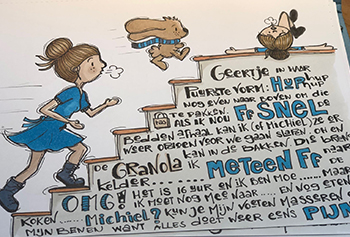 Geertje in haar
puurste vorm. Hup hup
nog even naar boven om die
te pakken. Ff snel de
als ik nu
bedden afhaal kan ik of Michiel ze er
weer opdoen voor we gaan slapen. Oh en
kan in de bakken. Die
De Granola meteen ff
kelder........
OMG! Het is 16 uur en ik ben moe.....
ik moet nog mee naar.... en nog
koken...... Michiel? Kun je mijn voeten masseren
mijn benen want alles doet weer eens pijn